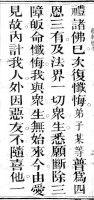 禮諸佛已次復懺悔弟子某等普為四
恩三有及法界一切眾生悉願斷除三
障皈命懺悔我與眾生無始來今由愛
見故內計我人外因惡友不隨喜他一